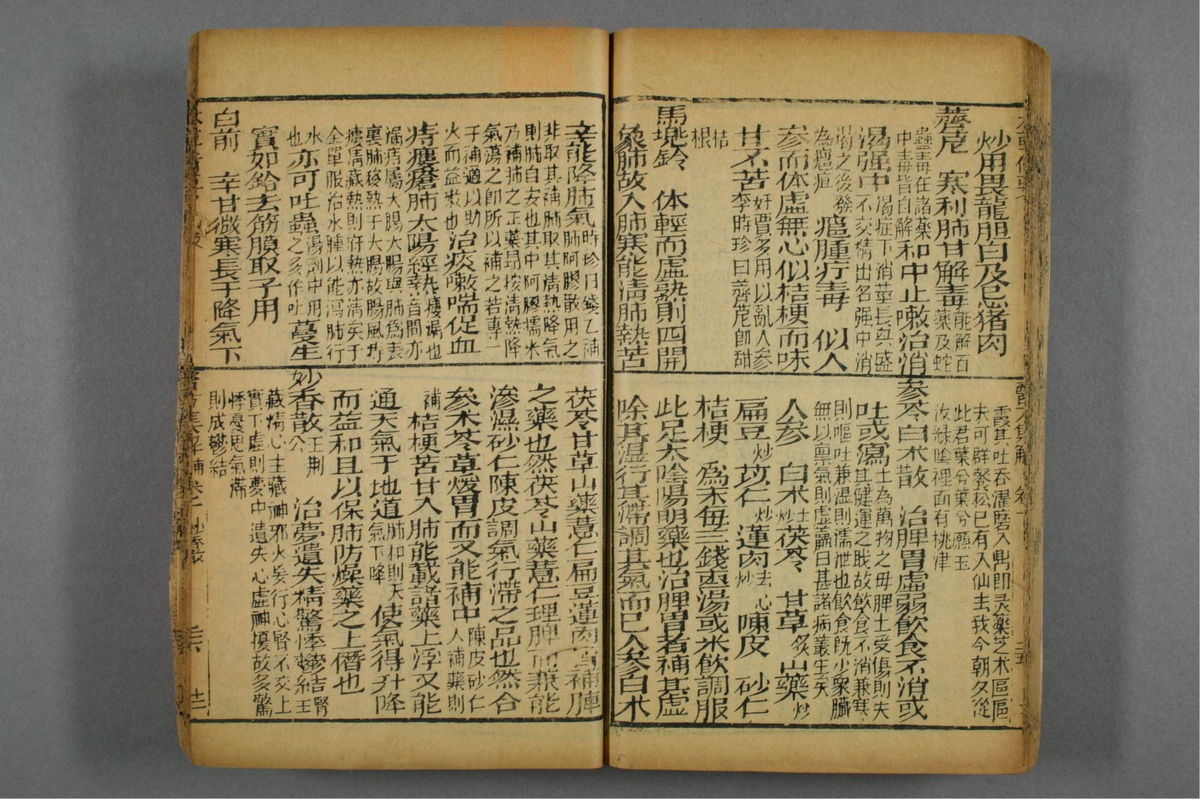 炒用畏龍胆白及忌猪肉
薺苨 寒利肺甘解毒能解百藥及蛇
蟲毒在諸藥中毒皆自解和中止嗽治消
渴强中渴症下消莖長興盛不交精出名强中消
渴之後發為癰疽癰腫疔毒 似人
參而体虛無心似桔梗而味
甘不苦好賈多用以亂人參李時珍曰薺苨即甜
桔根
馬兠鈴 体輕而虛熟則四開
象肺故入肺寒能清肺熱苦
霞其吐吞濯磨入鼎即灵藥芝术區區
夫可群松已有入仙主我今朝夕從
此君葉兮葉兮願玉
汝陰裡面有桃津
參苓白朮散 治脾胃虛弱飲食不消或
吐或瀉土為萬物之母脾土受傷則失其健運之職故飲食不消兼寒
則嘔吐兼湿則濡泄也飲食既少衆臟無以禀氣則虛羸日甚諸病叢生矣
人參 白术土炒 茯苓 甘草炙 山藥炒
扁豆炒 苡仁炒 蓮肉去心炒 陳皮 砂仁
桔梗 為末每三錢棗湯或米飲調服
此足太陰陽明藥也治脾胃者補其虛
除其湿行其滯調其氣而已人參白术
辛能降肺氣時珍曰錢乙補肺阿膠散用之
非取其補肺取其清熱降氣則肺自安也其中阿膠糯米
乃補肺之正藥昂按清熱降氣瀉之即所以補之若專一
于補適以助火而益嗽也治痰嗽喘促血
痔瘻瘡肺太陽經熱瘻漏也亦
屬痔屬大腸大腸與肺為表裏肺移熱于大腸故腸風痔
瘻清臟熱則府熱亦清矣
全單服治水腫以能瀉肺行水亦可吐蠱湯劑中用之多作吐也蔓生
實如鈴去筋膜取子用
白前 辛甘微寒長于降氣下
茯苓甘草山藥薏仁扁豆蓮肉皆補脾
之藥也然茯苓山藥薏仁理脾而兼能
滲濕砂仁陳皮調氣行滯之品也然合
參朮苓草煖胃而又能補中陳皮砂仁入補藥則補
桔梗苦甘入肺能載諸藥上浮又能
通天氣于地道肺和則天氣下降使氣得升降
而益和且以保肺防燥藥之上僭也
妙香散王荆公 治夢遺失精驚悸鬱結腎主
藏精心主藏神邪火妄行心腎不交上實下虛則夢中遺失心虛神擾故多驚
悸憂思氣滯則成鬱結